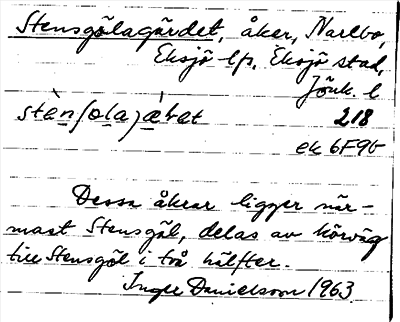 Stensgölagärdet, åker, Narlbo,
Eksjö lfs, Eksjö stad,
Jönk. l
stèn(ola)ǽrat 218
ek 6F9b
Dessa åkrar ligger när-
mast Stensgöl, delas av körväg
till Stensgöl i två hälfter.
Inger Danielsson 1963